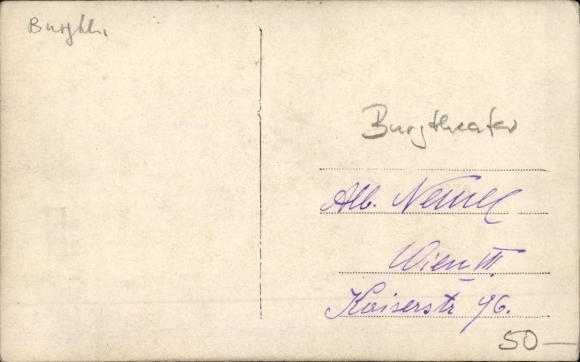 Burgth.
Burgtheater
Alb.
Wien III.
Kaiserstr 96.
50—